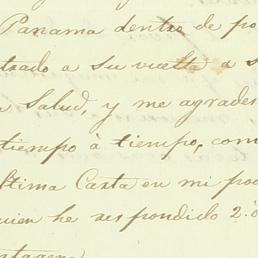 Panama dentro de po
trado a su vuelta a s
a Salud, y me agrades
tiempo à tiempo, com
ltima Carta en mi pod
uien he respondido 2.o
artagena